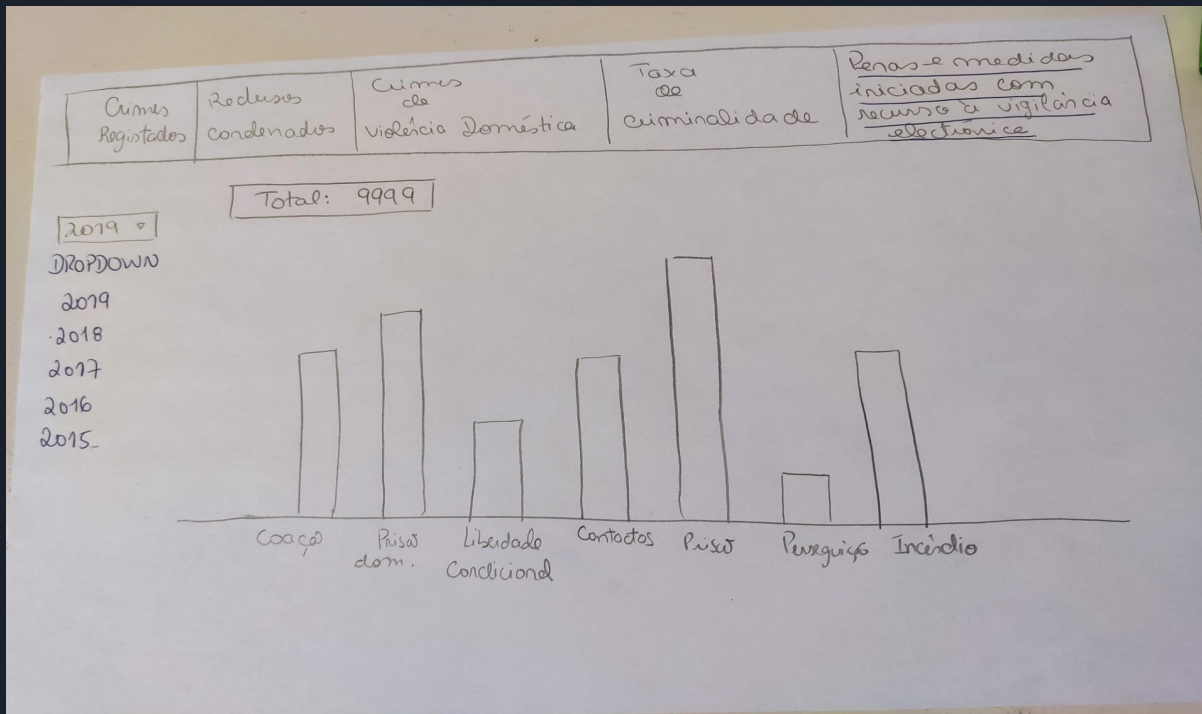 Crimes
Registados
Reclusos
condenados
Crimes
de
violência Doméstica
Taxa
de
criminalidade
Penas e medidas
iniciadas com
recurso à vigilância
electrónica
Total: 9999
2019
DROPDOWN
2019
2018
2017
2016
2015
Coação
Prisão
dom.
Liberdade
Condicional
Contactos
Prisão
Perseguição
Incêndio